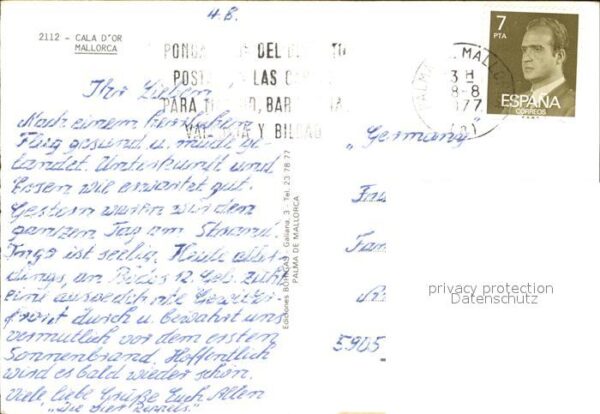 4.8.
2112 - CALA D'OR
MALLORCA
7
PTA
ESPAÑA
CORREOS
PONGA DEL
POSTAL LAS
PARA BAR
VAL Y BILBAO
PALMA MALLO
3 H
8-8
77
Ihr Lieben!
Nach einem herrlichen
Flug gesund u. müde ge-
landet. Unterkunft und
Essen wie erwartet gut.
Gestern waren wir den
ganzen Tag am Strand.
Inga ist selig. Heute aller-
dings, an Bodos 12. Geb. zieht
eine ausgedehnte Gewitter-
front durch u. bewahrt uns
vermutlich vor dem ersten
Sonnenbrand. Hoffentlich
wird es bald wieder schön.
Viele liebe Grüße Euch Allen
"Die vier
Ediciones BOHIGAS - Galiana, 3 - Tel. 23 78 77
PALMA DE MALLORCA
"Germany"
Fa
5905
privacy protection
Datenschutz